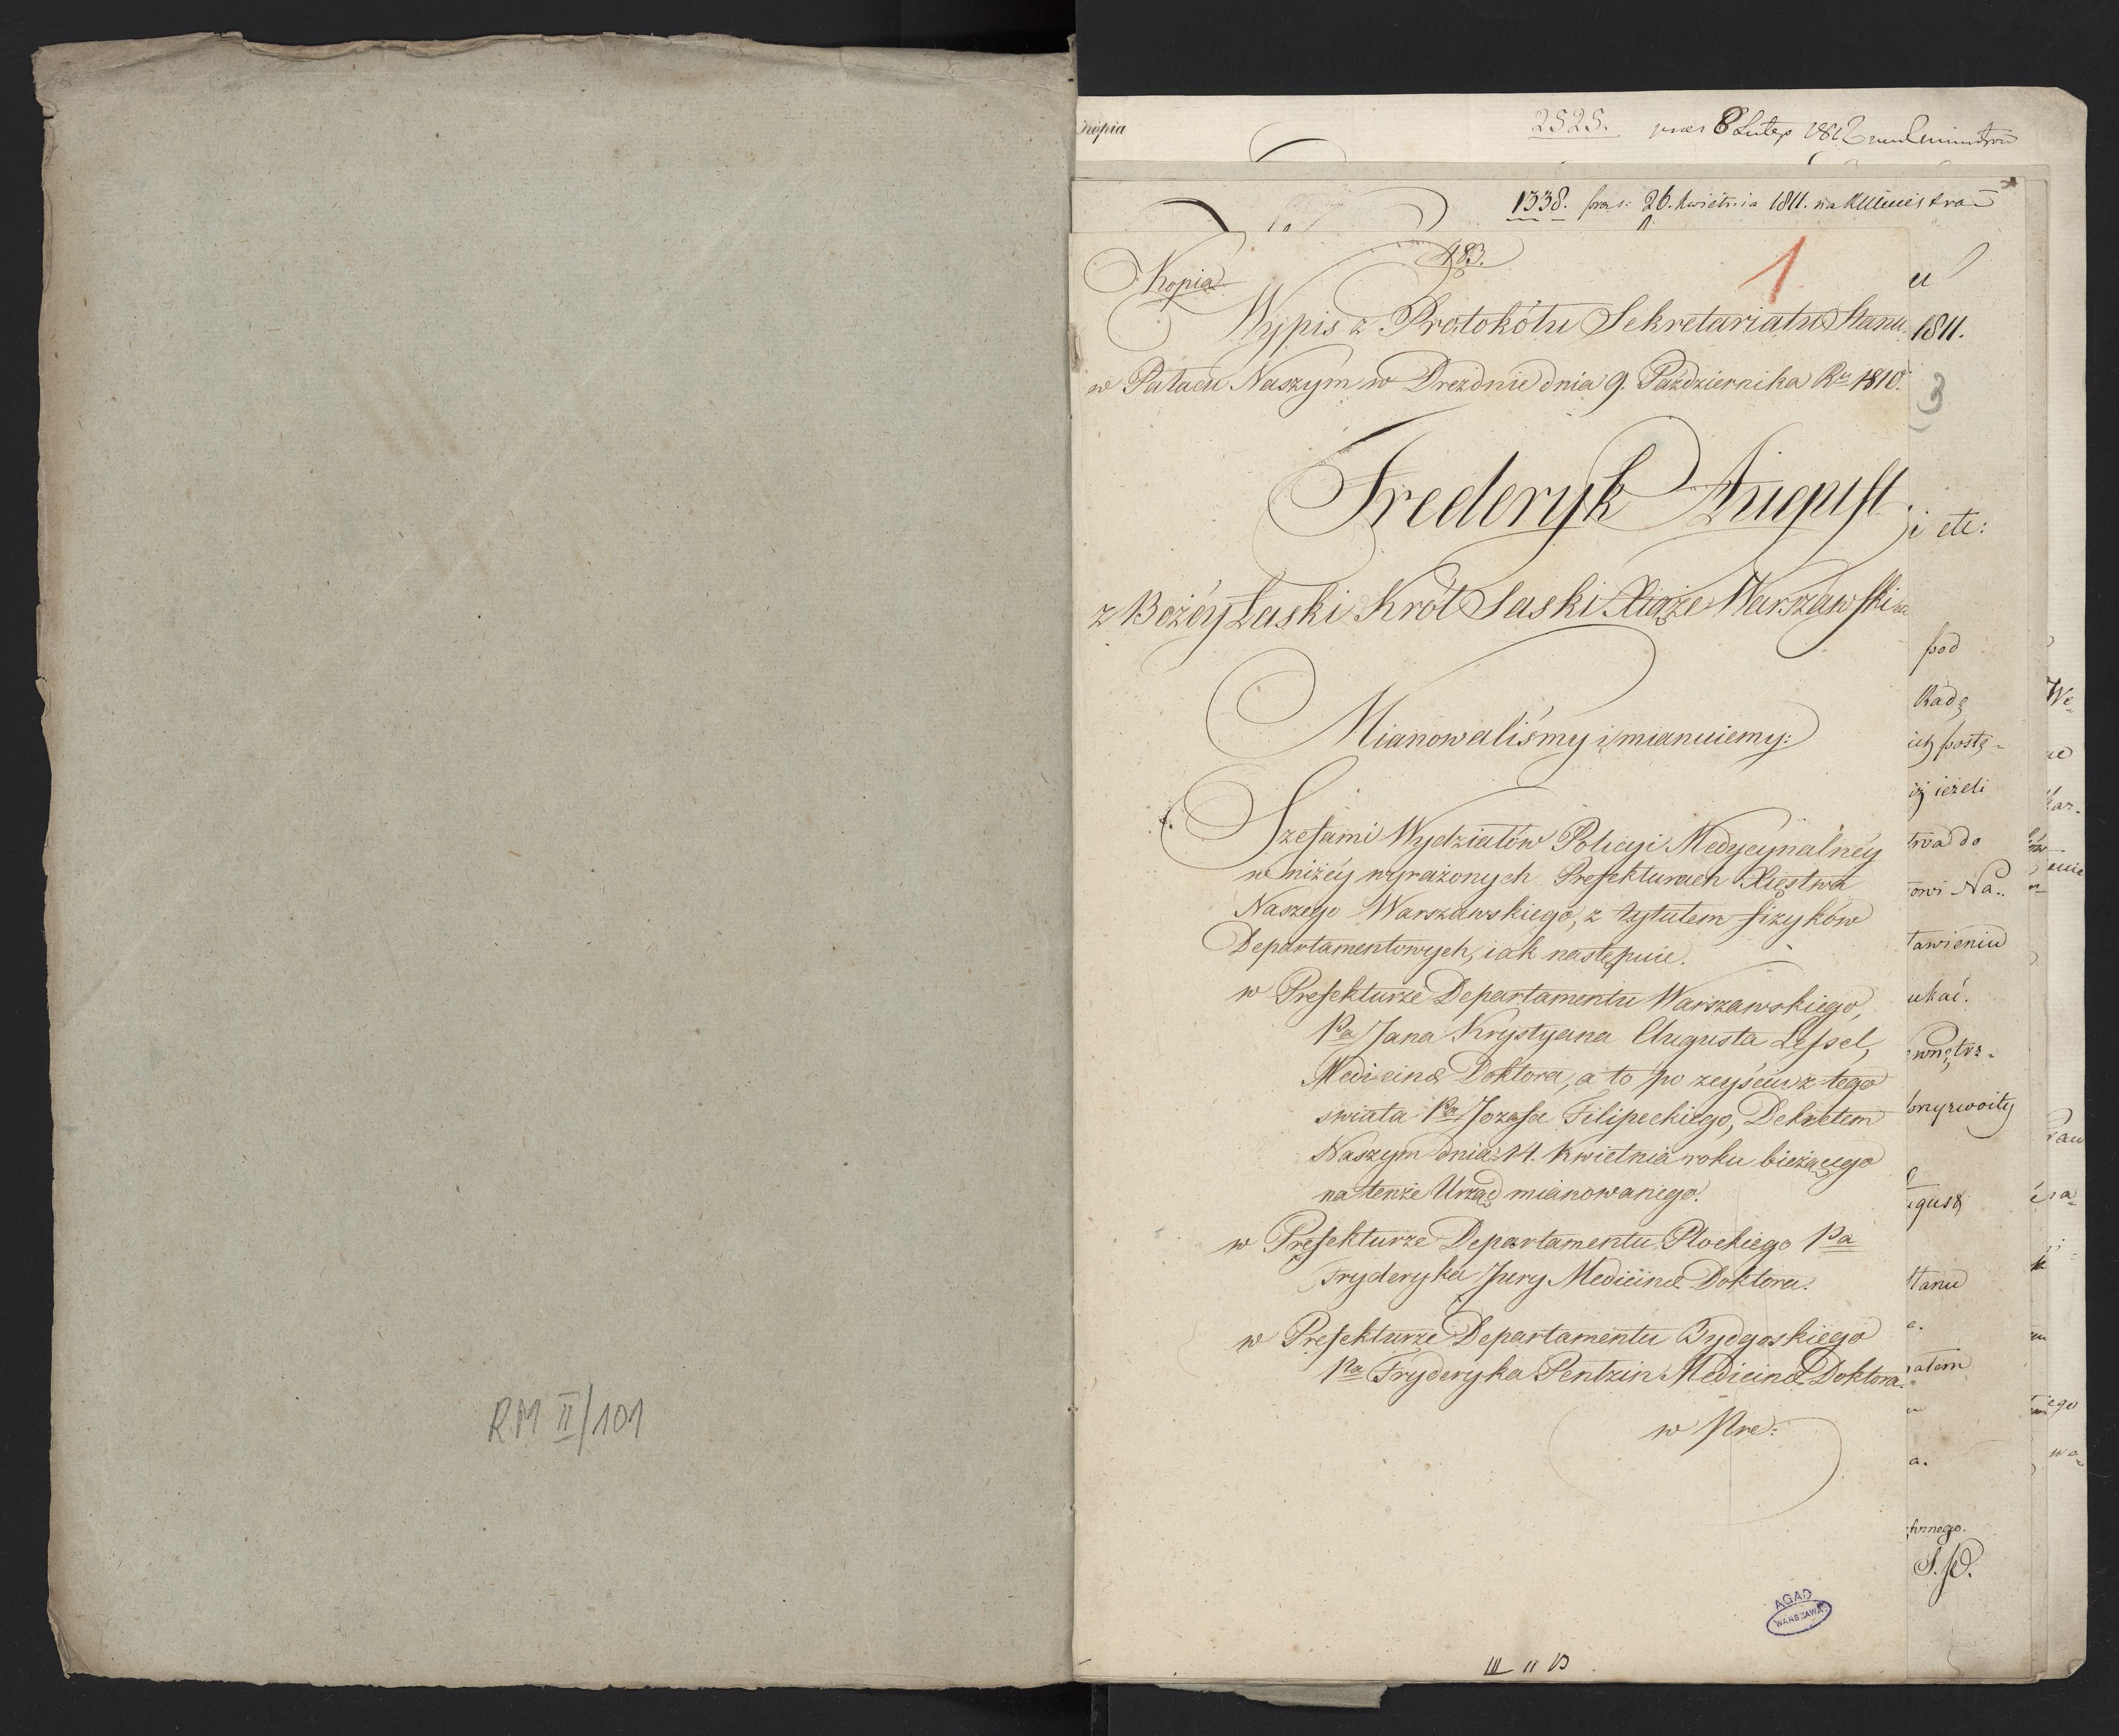 RM II/101
Kopia
2525. 8 Lutego 1812
1338. praes: 26. kwietnia 1811. na
483.
1
Kopia
Wypis z Protokółu Sekretariatu Stanu
w Pałacu Naszym w Dreznie dnia 9. Października Ru 1810.
Frederyk August
z Bożéy Łaski Król Saski Xiąże Warszawski
Mianowaliśmy i mianuiemy:
Szefami Wydziałów Policyi Medycynalnéy
w niżéy wyrażonych Prefekturach Xięstwa
Naszego Warszawskiego, z tytułem fizyków
Departamentowych, iak następuie.
w Prefekturze Departamentu Warszawskiego,
Pa Jana Krystyana Augusta Lessel,
Medicinæ Doktora, a to po zeyściu z tego
swiata Pa Jozefa Filipeckiego, Dekretem
Naszym dnia 14. Kwietnia roku bieżącego
na tenże Urząd mianowanego.
w Prefekturze Departamentu Płockiego Pa
Fryderyka Jpery Medicinæ Doktora.
w Prefekturze Departamentu Bydgoskiego
Pa Fryderyka Pentzin Medicinæ Doktora.
w Pre:
AGAD
WARSZAWA
1811.
3
i etc:
pod
Radę
ich postę-
iż ieżeli
twa do
owi Na..
tawieniu
ukać.
ewnętrz-
przyzwoity
gust
Stanu
e.
ratem
a.
trznego.